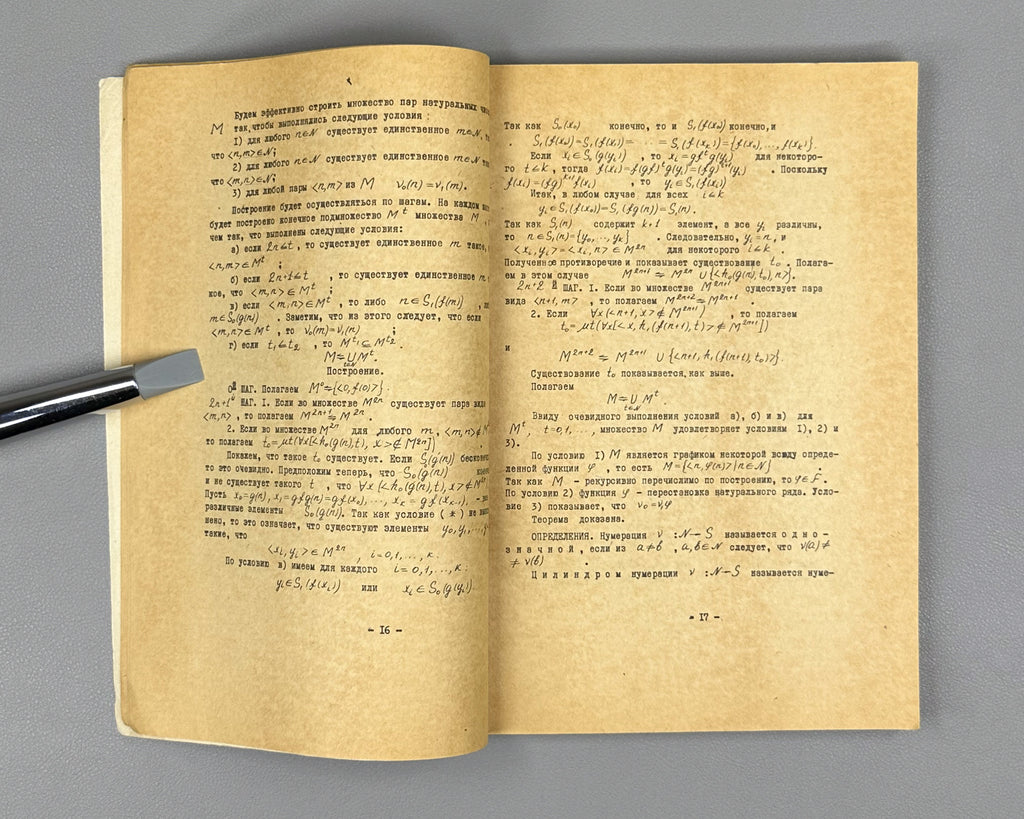 Будем эффективно строить множество пар натуральных
M так, чтобы выполнялись следующие условия :
1) для любого n∈N существует единственное m∈N,
что <n,m>∈N;
2) для любого n∈N существует единственное m∈N
что <m,n>∈N;
3) для любой пары <n,m> из M ν₀(n)=ν₁(m).
Построение будет осуществляться по шагам. На каждом
будет построено конечное подмножество Mᵗ множества M
чем так, что выполнены следующие условия:
а) если 2n≤t, то существует единственное m такое,
<n,m>∈Mᵗ ;
б) если 2n+1≤t , то существует единственное n
кое, что <m,n>∈Mᵗ ;
в) если <m,n>∈Mᵗ , то либо n∈S₁(f(m)) ,
m∈S₀(g(n)) . Заметим, что из этого следует, что если
<m,n>∈Mᵗ , то ν₀(m)=ν₁(n) ;
г) если t₁≤t₂ , то Mᵗ¹⊆Mᵗ² .
M=∪Mᵗ.
t∈N
Построение.
0й ШАГ. Полагаем M⁰={<0,f(0)>} .
2n+1й ШАГ. I. Если во множестве M²ⁿ существует пара вида
<m,n> , то полагаем M²ⁿ⁺¹=M²ⁿ .
2. Если во множестве M²ⁿ для любого m, <m,n>∉M
то полагаем t₀=μt(∀x[<h₀(g(n),t), x>∉M²ⁿ])
Покажем, что такое t₀ существует. Если S₀(g(n))
то это очевидно. Предположим теперь, что S₀(g(n))
и не существует такого t , что ∀x<h₀(g(n),t),x>∉M²ⁿ.
Пусть x₀=g(n), x₁=gfg(n)=gf(x₀),..., xₖ=gf(xₖ₋₁),
различные элементы S₀(g(n)). Так как условие ( * ) не
нено, то это означает, что существуют элементы y₀,y₁,...,
такие, что
<xᵢ,yᵢ>∈M²ⁿ , i=0,1,...,k.
По условию в) имеем для каждого i=0,1,...,k:
yᵢ∈S₁(f(xᵢ)) или xᵢ∈S₀(g(yᵢ))
- I6 -
Так как S₀(x₀) конечно, то и S₁(f(x₀)) конечно, и
S₁(f(x₀))=S₁(f(x₁))= ... =S₁(f(xₖ))={f(x₀),...,f(xₖ)}.
Если xᵢ∈S₀(g(yᵢ)) , то xᵢ=gfᵗg(yᵢ) для некоторо-
го t≤k , тогда f(xᵢ)=f(gf)ᵗg(yᵢ)=(fg)ᵗ⁺¹(yᵢ) . Поскольку
f(xᵢ)=(fg)ⁱ⁺¹f(xᵢ) , то yᵢ∈S₁(f(xᵢ))
Итак, в любом случае для всех i≤k
yᵢ∈S₁(f(x₀))=S₁(fg(n))=S₁(n).
Так как S₁(n) содержит k+1 элемент, а все yᵢ различны,
то n∈S₁(n)={y₀,...,yₖ} . Следовательно, yᵢ=n, и
<xᵢ,yᵢ>=<xᵢ,n>∈M²ⁿ для некоторого i≤k .
Полученное противоречие и показывает существование t₀. Полага-
ем в этом случае M²ⁿ⁺¹ = M²ⁿ ∪{<h₀(g(n),t₀),n>}.
2n+2 й ШАГ. I. Если во множестве M²ⁿ⁺¹ существует пара
вида <n+1,m> , то полагаем M²ⁿ⁺²=M²ⁿ⁺¹ .
2. Если ∀x(<n+1,x>∉M²ⁿ⁺¹) , то полагаем
t₀=μt(∀x[<x,h₁(f(n+1),t)>∉M²ⁿ⁺¹])
и
M²ⁿ⁺² = M²ⁿ⁺¹ ∪{<n+1,h₁(f(n+1),t₀)>}.
Существование t₀ показывается, как выше.
Полагаем
M=∪ Mᵗ .
t∈N
Ввиду очевидного выполнения условий а), б) и в) для
Mᵗ, t=0,1,..., множество M удовлетворяет условиям I), 2) и
3).
По условию I) M является графиком некоторой всюду опреде-
ленной функции φ , то есть M={<n,φ(n)>|n∈N} .
Так как M - рекурсивно перечислимо по построению, то φ∈F.
По условию 2) функция φ - перестановка натурального ряда. Усло-
вие 3) показывает, что ν₀=ν₁φ
Теорема доказана.
ОПРЕДЕЛЕНИЯ. Нумерация ν :N→S называется о д н о -
з н а ч н о й , если из a≠b , a,b∈N следует, что ν(a)≠
≠ν(b) .
Ц и л и н д р о м нумерации ν :N→S называется нуме-
- I7 -